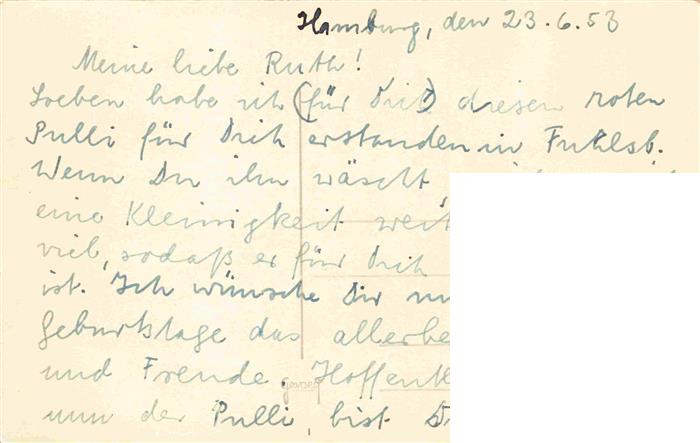 Hamburg, den 23.6.53
Meine liebe Ruth!
Soeben habe ich (für Dich) diesen roten
Pulli für Dich erstanden in Fuhlsb.
Wenn Du ihn wäscht
eine Kleinigkeit weit
viel, sodaß er für Dich
ist. Ich wünsche Dir
Geburtstage das allerbe
und Freude. Hoffentl
nun der Pulli, bist D